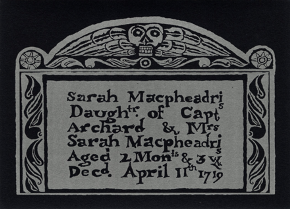 Sarah Macpheadris
Daughtr. of Capt
Archard & Mrs
Sarah Macpheadris
Aged 2 Monts & 3 W
Decd. April 11th 1719